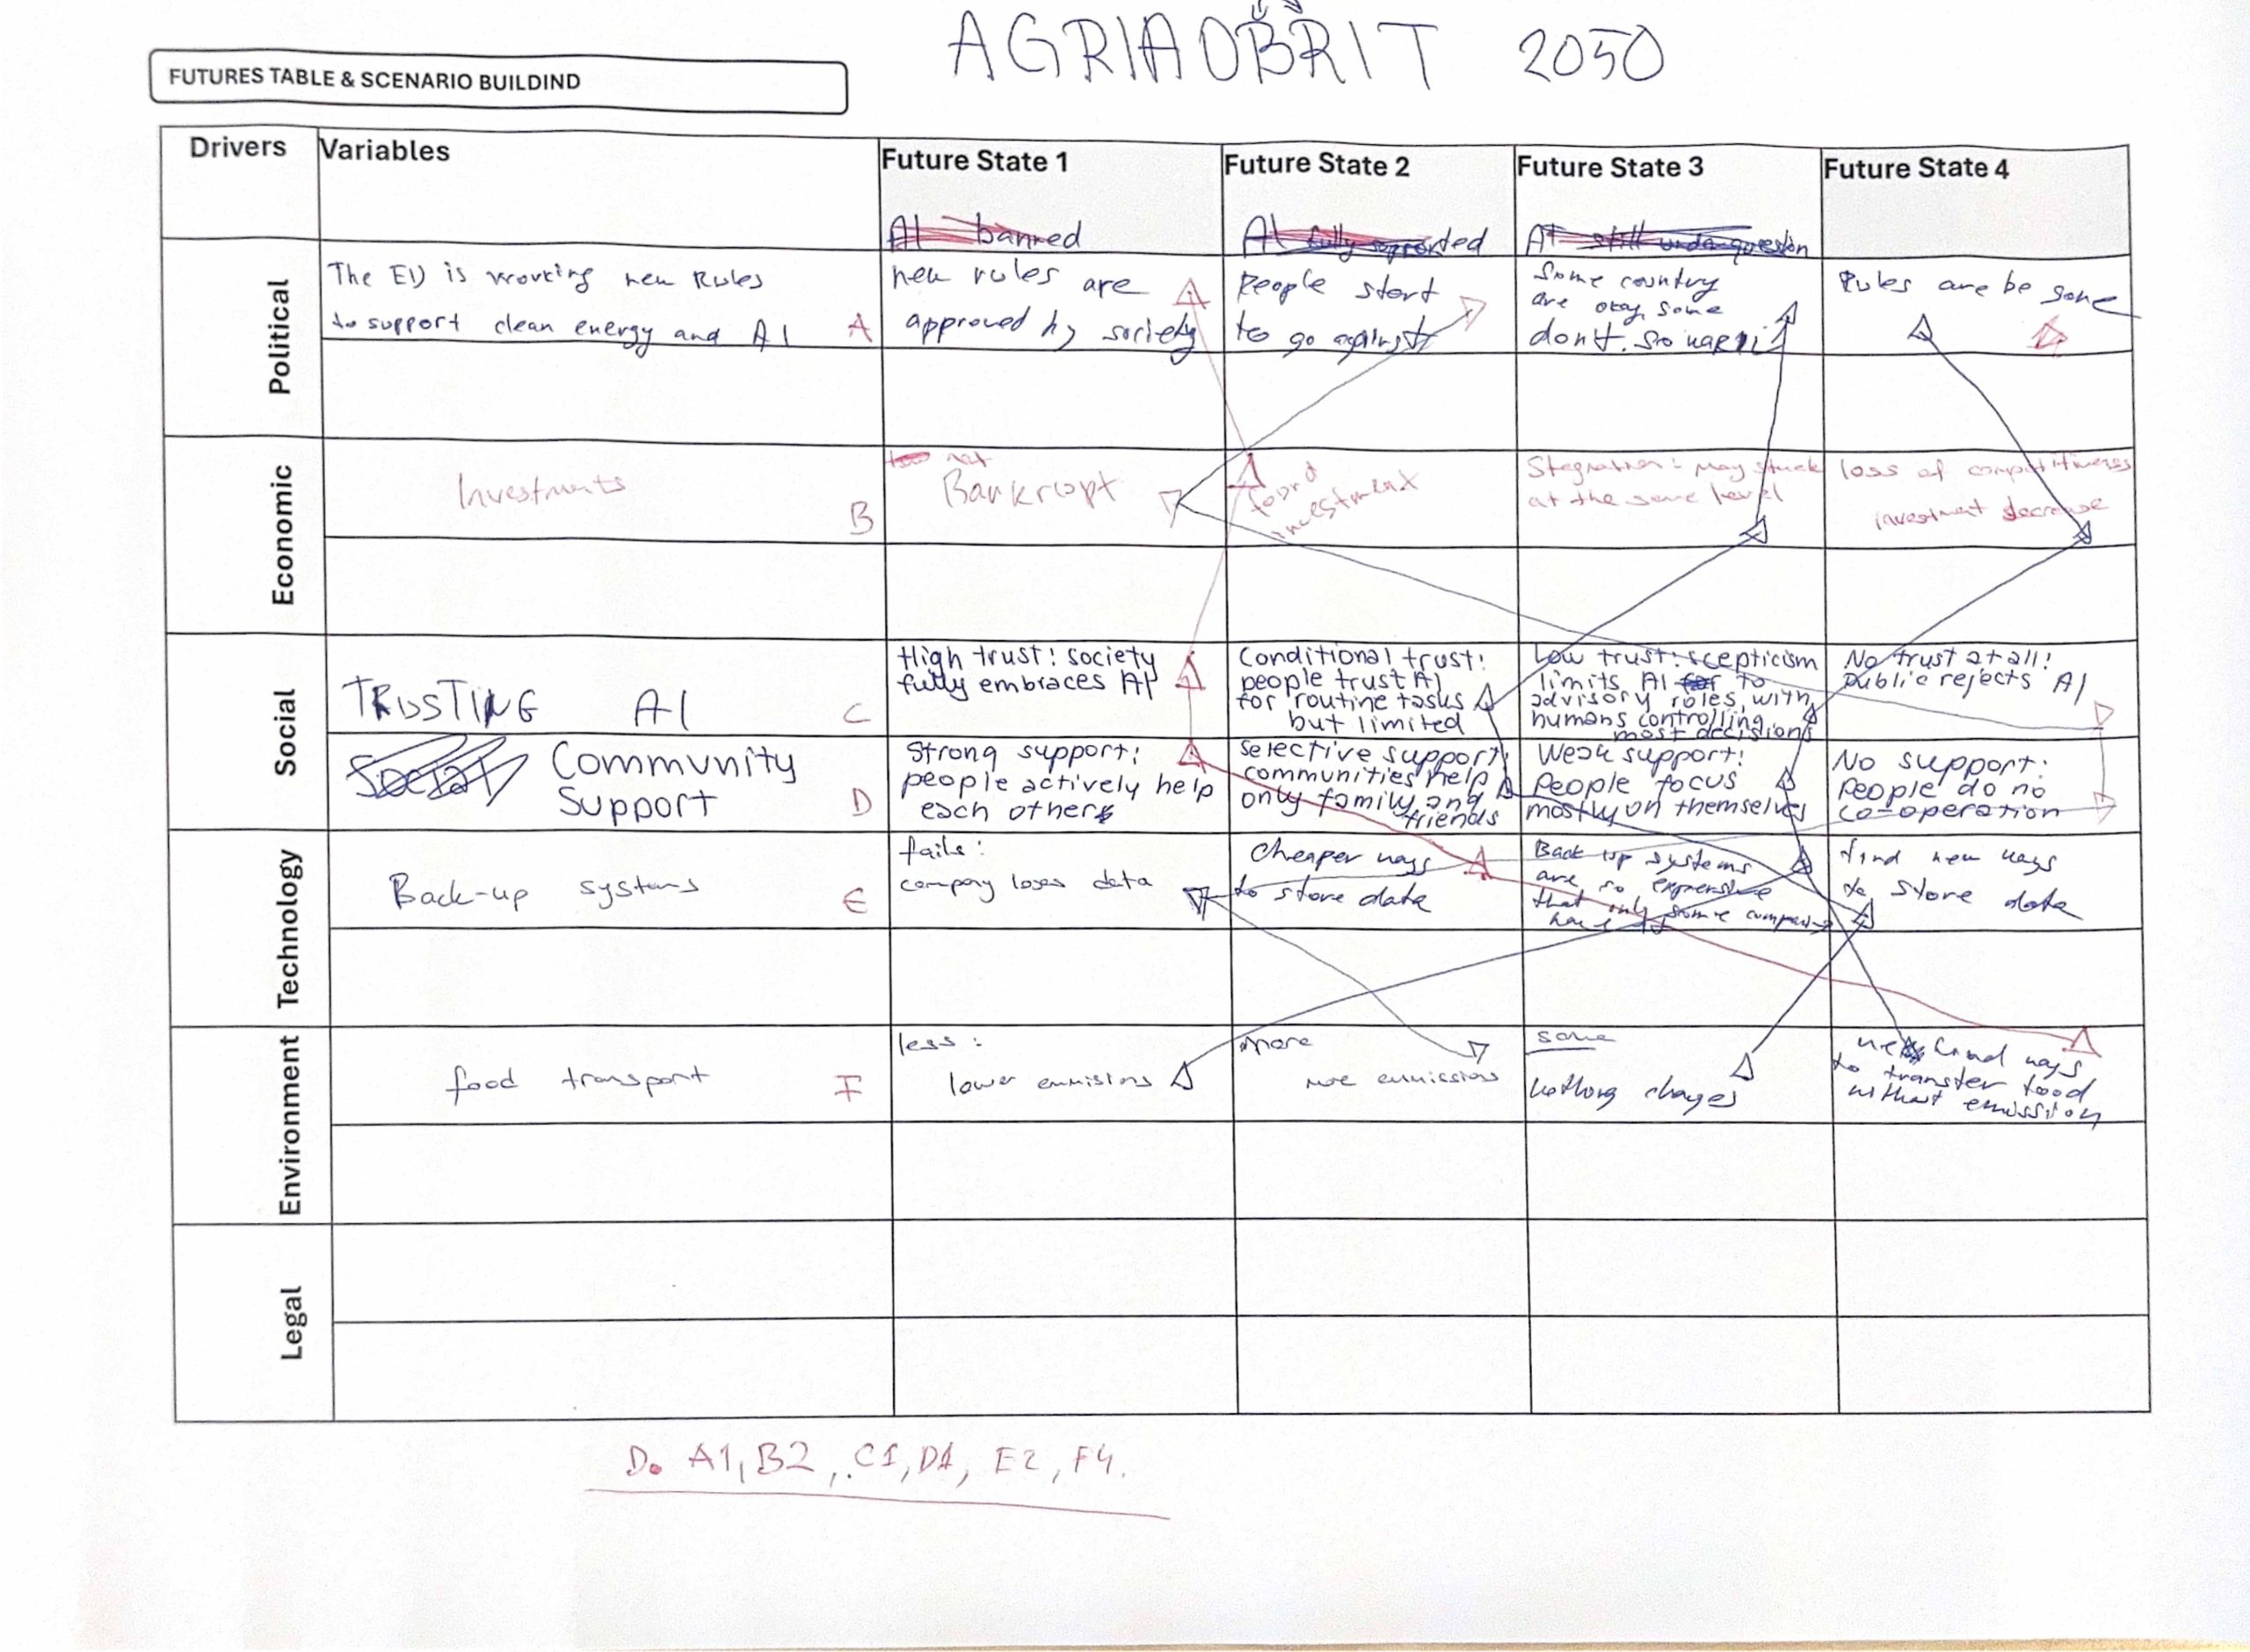 AGRIAOBRIT 2050
FUTURES TABLE & SCENARIO BUILDIND
Drivers
Variables
Future State 1
AI banned
Future State 2
AI fully supported
Future State 3
AI still under question
Future State 4
Political
The EU is working new Rules
to support clean energy and AI A
new rules are
approved by society
People start
to go against
Some country
are okay, some
don't. So
Rules are be gone
Economic
Investments
B
not
Bankropt
found
investment
Stegnation: may stuck
at the same level
loss of competitiveness
investment decrease
Social
TRUSTING AI C
High trust: society
fully embraces AI
Conditional trust:
people trust AI
for routine tasks
but limited
Low trust: scepticism
limits AI for to
advisory roles, with
humans controlling
most decisions
No trust at all!
Public rejects AI
Social Community
Support D
Strong support:
people actively help
each others
Selective support:
communities help
only family and
friends
Weak support:
People focus
mostly on themselves
No support:
People do no
co-operation
Technology
Back-up systems E
fails:
compony loses data
Cheaper ways
to store data
Back up systems
are so expensive
that only some
have it
find new ways
to store data
Environment
food transport F
less:
lower emmisions
more
more emmissions
same
Nothing changes
new kind ways
to transfer food
without emission
Legal
D. A1, B2, C1, D1, E2, F4.